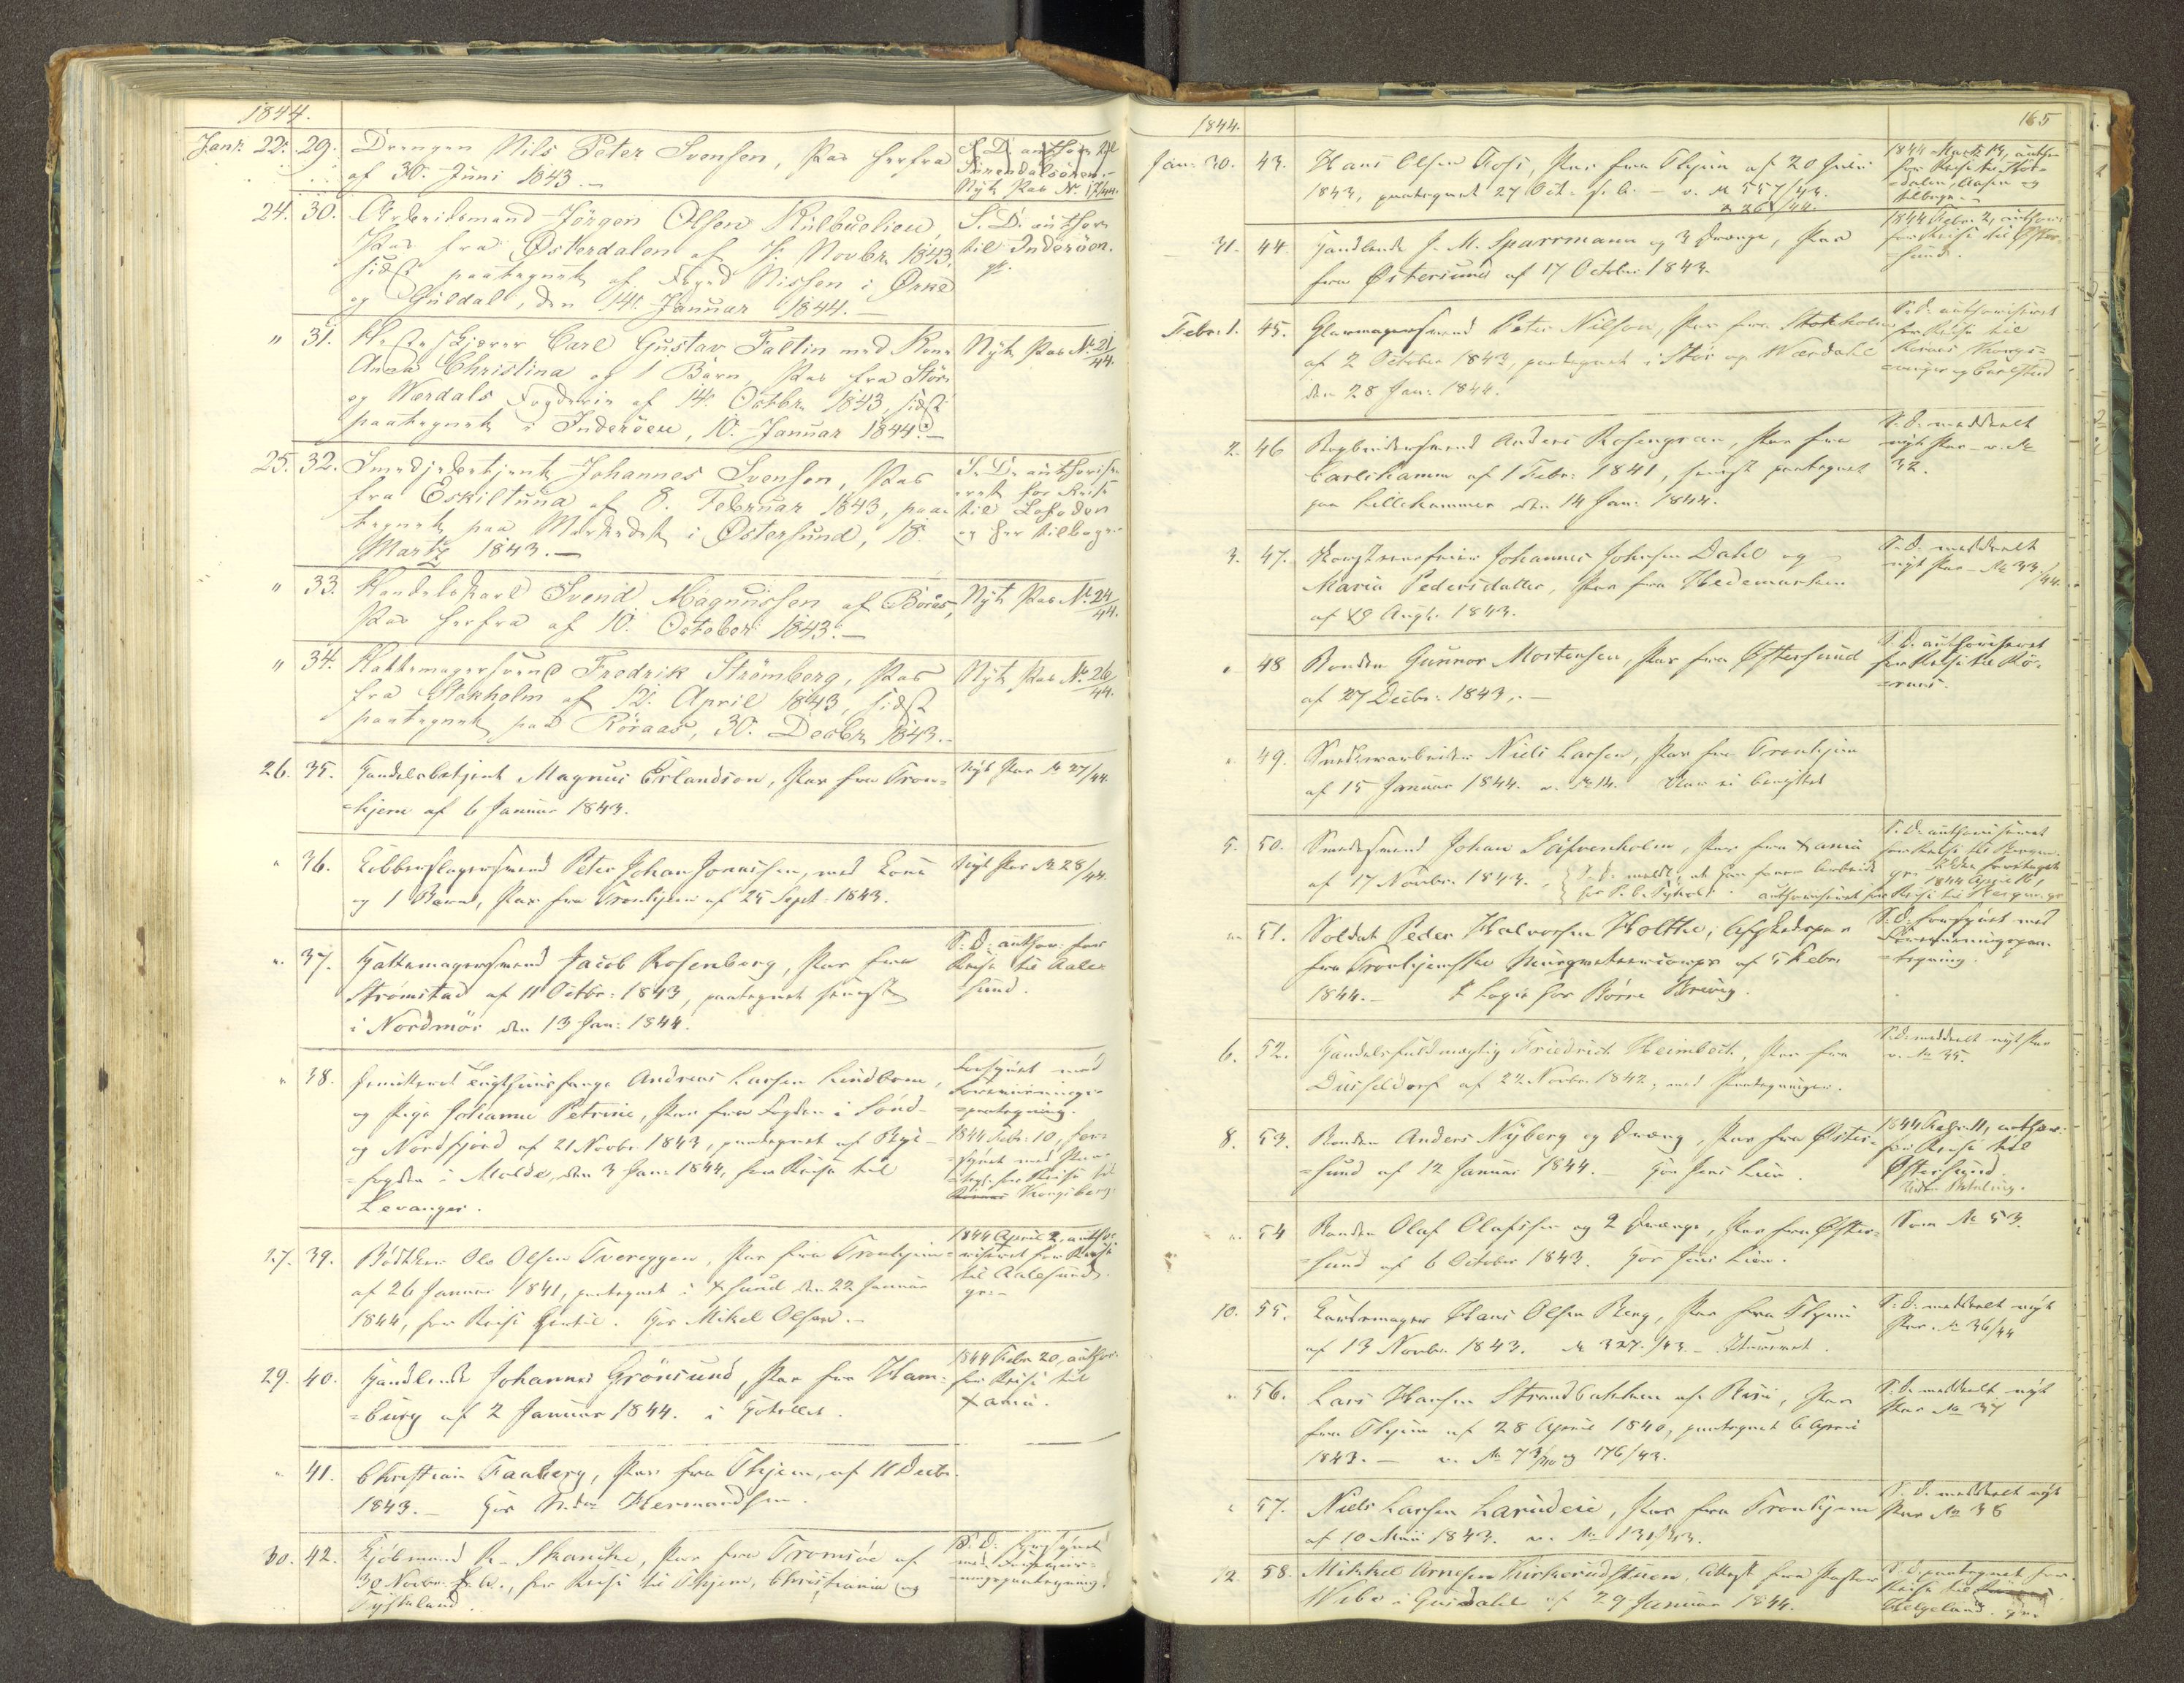 1844.
Janr. 22. 29. Drengen Nils Peter Svensen, Pas herfra
af 30. Juni 1843.-
S. D. author. til
Surendalsören.-
Nyt Pas No. 17/44.
24. 30. Arbeidsmand Jörgen Olsen Külbuelien,
Pas fra Østerdalen af 7. Novbr. 1843,
sidst paategnet af Foged Nissen i Ørke
og Guldal, den 14. Januar 1844.-
S. D. author.
til Inderöen.
gr.
" 31. Carl Gustav Faltin med Kone
Anna Christina og 1 Barn, Pas fra Stör-
og Værdals Fogderie af 14. Octbr. 1843, sidst
paategnet i Inderöen, 10. Januar 1844.-
Nyt Pas No. 21/44.
25. 32. Smedjebetjent Johannes Svenson, Pas
fra Eskiltuna af 8. Februar 1843, paa-
tegnet paa Markedet i Østersund, 18.
Martz 1843.-
S. D. authorise-
ret for Reise
til Lofoden
og her tilbage.
" 33. Handelskarl Svend Magnussen af Borås,
Pas herfra af 10. October 1843.-
Nyt Pas No. 24/44.
" 34. Hattemagersvend Fredrik Strömberg, Pas
fra Stokholm af 12. April 1843, sidst
paategnet paa Röraas, 30. Decbr. 1843.-
Nyt Pas No. 26/44.
26. 35. Handelsbetjent Magnus Erlandson, Pas fra Tron-
=hjem af 6 Januar 1843.
Nyt Pas No 27/44.
" 36. Kobberslagersvend Peter Johan Jonassen, med Kone
og 1 Barn, Pas fra Tronhjem af 25 Sept. 1843.
Nyt Pas No 28/44.
" 37. Hattemagersvend Jacob Rosenberg, Pas fra
Strömstad af 11 Octbr: 1843, paategnet senest
i Nordmör den 13 Jan: 1844.
S: D: author: for
Reise til Aale-
sund.
" 38. Dimitteret Tugthuusfange Andreas Larsen Lindbom,
og Pige Johanne Petrine, Pas fra Fogden i Sönd-
og Nordfjord af 21 Novbr 1843, paategnet af Bye-
=fogden i Molde, den 3 Jan: 1844, for Reise til
Levanger.
Forsynet med
Foreviisnings-
=paategning.
1844 Febr: 10, for-
=synet med Paa-
=tegn. for Reise til
Kongsberg.
27. 39. Bödtker Ole Olsen Tvereggen, Pas fra Tronhjem
af 26 Januar 1841, paategnet i Xsund den 22 Januar
1844, for Reise hertil. Hos Mikel Olsen.-
1844 April 2, autho-
=riseret for Reise
til Aalesund.
gr.-
29. 40. Handlende Johannes Grönsund, Pas fra Ham-
=burg af 2 Januar 1844. i Hotellet.
1844 Febr 20, author:
for Reise til
Xania.
" 41. Christian Faaberg, Pas fra Thjem, af 11 Decbr.
1843.- Hos Hermandsen.
30. 42. Kjöbmand R. Skancke, Pas fra Tromsöe af
30 Novbr. f. A., for Reise til Thjem, Christiania og
Tydskland.
S: D: forsynet
med Foreviis-
=ningspaategning.
1844. 165
Jan: 30. 43. Hans Olsen Moss, Pas fra Thjem af 20 Juni
1843, paategnet 27 Oct. f. A. - v. No 557/43.
& 26/44.
1844 Marts 19, author
for Reise til Stör-
=dalen, Aasen og
tilbage.-
- 31. 44. Handlende J. M. Sparrmann og 3 Drenge, Pas
fra Østersund af 17 October 1843.
1844 Febr: 2, author:
for Reise til Öster-
=sund.
Febr: 1. 45. Glarmagersvend Peter Nilson, Pas fra Stokholm
af 2 October 1843, paategnet i Stör og Wærdahl
den 28 Jan: 1844.
S. D. authoriseret
for Reise til
Röraas Kongs-
=vinger og Carlstad
2. 46 Bogbindersvend Anders Rosengran, Pas fra
Carlshamn af 1 Febr: 1841, senest paategnet
paa Lillehammer den 14 Jan: 1844.
S. D. meddeelt
nyt Pas - v. No
32.
3. 47. Johannes Johnsen Dahl og
Maria Pedersdatter, Pas fra Hedemarken
af 19 Augt. 1843.
S. D. meddeelt
nyt Pas - No 33/44.
" 48 Bonden Gunnar Mortensen, Pas fra Östersund
af 27 Decbr: 1843.-
S. D. authoriseret
for Reise til Rö-
=raas.
" 49. Snedkerarbeider Niels Larsen, Pas fra Tronhjem
af 15 Januar 1844. v. No 14. Pas ei benyttet
5. 50. Smedesvend Johan Säfvenholm, Pas fra Xania
af 17 Novbr. 1843. S. D. meldt, at han faaer Arbeide
S. D. authoriseret
for Reise til Bergen.
gr. 1844 April 16,
authoriseret for Reise til Bergen. gr.
" 51. Soldat Peder Halvorsen Holthe, Afskedspas
fra Tronhjemske af 5 Febr.
1844.- I Logie hos Börre
S: D: forsynet med
Foreviisningspaa-
=tegning.
6. 52. Handelsfuldmægtig Friedrich Heimbeck, Pas fra
Düsseldorf af 22 Novbr. 1842, med Paategninger.
S. D. meddeelt nyt Pas
v. No 35.
8. 53. Bonden Anders Nyberg og Dreng, Pas fra Öster-
=sund af 12 Januar 1844.- Hos Jens Lien.
1844 Febr: 11, author:
for Reise til
Östersund.
Uden Betaling.
" 54 Bonden Olaf Olafsen og 2 Drenge, Pas fra Öster-
=sund af 6 October 1843. Hos Jens Lien.
Som No 53.
10. 55. Hans Olsen Berg, Pas fra Thjem
af 13 Novbr. 1843. No 327./43.-
S. D. meddeelt nyt
Pas. No 36/44
" 56. Lars Hansen Strandbakken af Pas
fra Thjem af 28 April 1840, paategnet 6 April
1843.- v. No 73/40 og 176/43.
S. D. meddeelt nyt
Pas No 37
" 57. Niels Larsen Pas fra Tronhjem
af 10 Mai 1843. v. No 131/43.
S. D. meddeelt nyt
Pas No 38
12. 58. Mikkel Arnesen Attest fra Pastor
Wibe i Guldahl af 29 Januar 1844.
S. D. paategnet for
Reise til
Helgeland. gr.